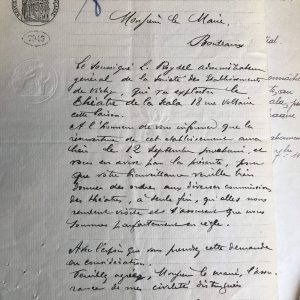 Monsieur le Maire,
Bordeaux
Le Soussigné L. Reydel administrateur
général de la Société des Etablissements
de Vichy, qui va exploiter le
Théâtre de la Scala 18 rue Voltaire
cette saison.
A l'honneur de vous informer que la
réouverture de cet établissement aura
lieu le 12 Septembre prochain, et
vous en avise par la présente, pour
que votre bienveillance veuille bien
donner des ordres aux diverses commissions
des théâtres, à seule fin, qu'elles nous
rendent visite et s'assurent que nous
sommes parfaitement en règle.
Avec l'espoir que vous prendrez cette demande
en considération.
Veuillez agréer, Monsieur le Maire, l'assu-
rance de mes civilités distinguées